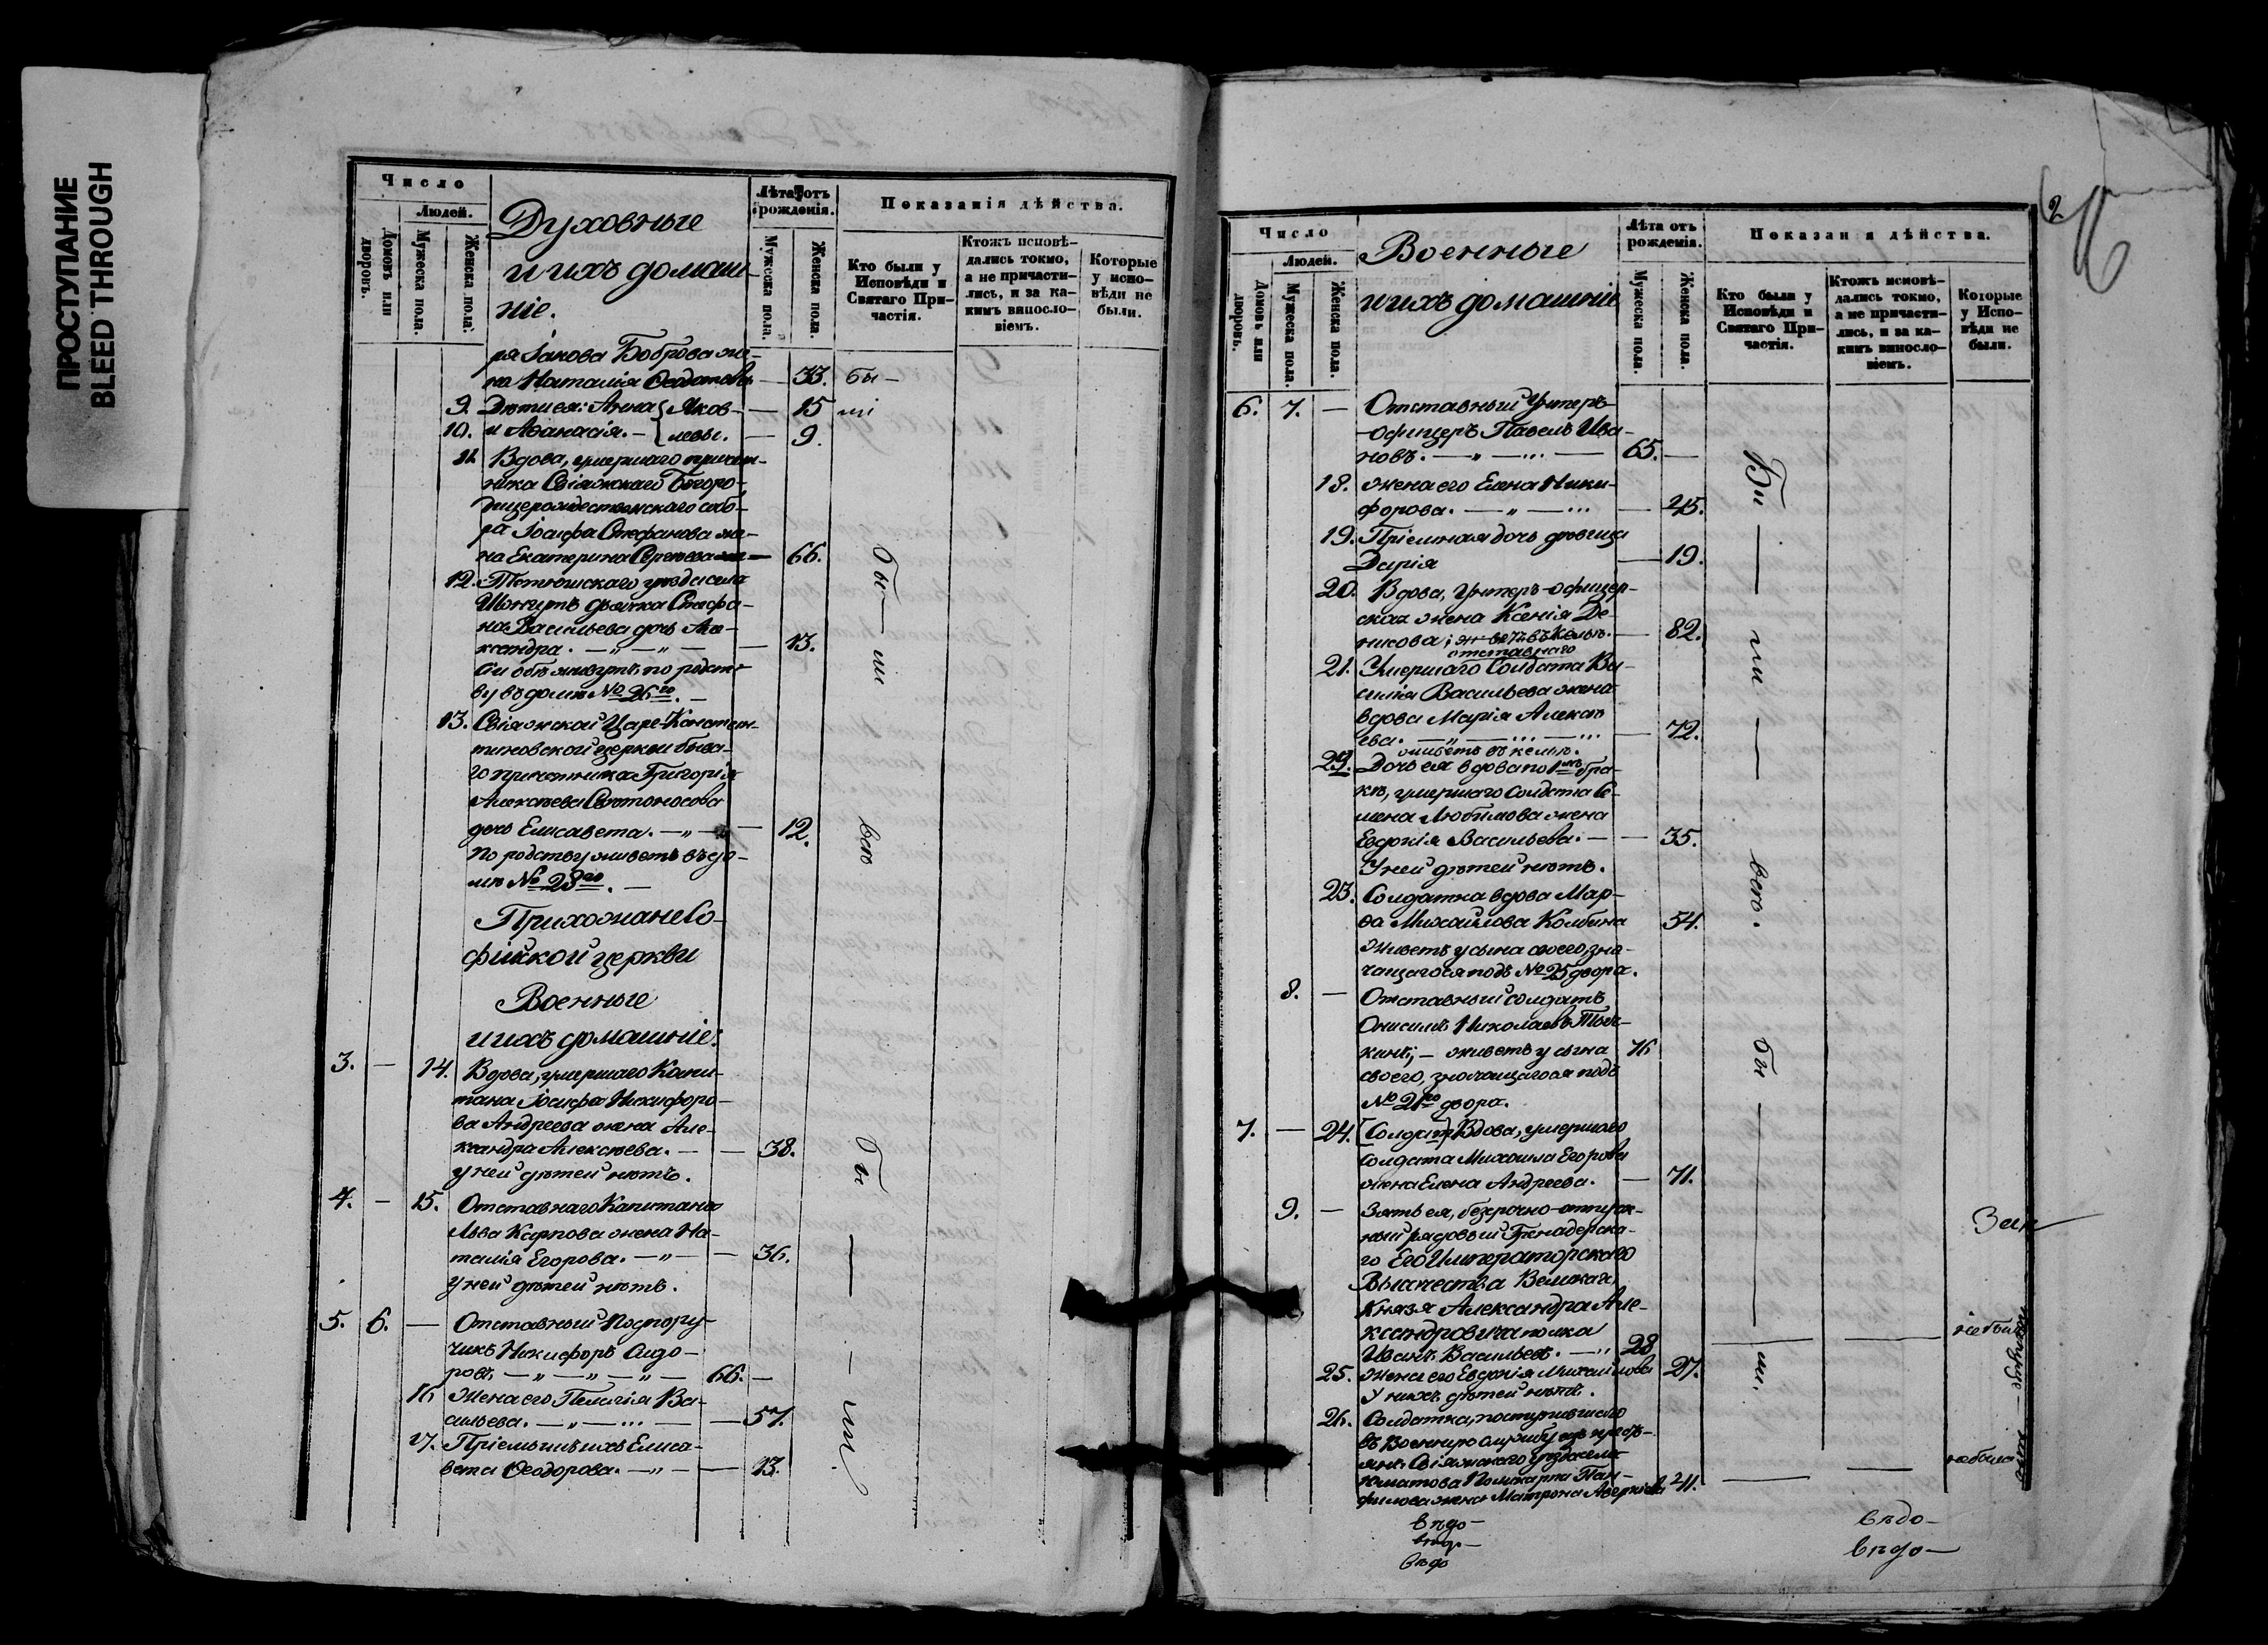 ПРОСТУПАНИЕ
BLEED THROUGH
Число
Людей.
Домовъ или дворовъ.
Мужеска пола.
Женска пола.
Духовные
и ихъ домаш-
ніе.
Лѣта отъ рожденія.
Мужеска пола.
Женска пола.
Показанія дѣйства.
Кто были у Исповѣди и Святаго Причастія.
Ктожъ исповѣ-
дались токмо,
а не причасти-
лись, и за ка-
кимъ виносло-
віемъ.
Которые
у испо-
вѣди не
были.
ря Іакова Боброва же-
на Наталія Ѳеодотова — 33. бы-
9. Дѣти ея: Анна { Яков- — 15 ли
10. и Аѳанасія. — { левы. — 9.
11. Вдова, умершаго причет-
ника Свіяжскаго Богоро-
дицерождественскаго собо-
ра Іосифа Стефанова же-
на Екатерина Сергеева — 66.
12. Тетюшскаго уѣзда села
дьячка Стефа-
на Васильева дочь Але-
ксандра. — „ — „ — 13.
Сіи обѣ живутъ по родст-
ву въ домѣ № 26го. —
13. Свіяжской Царе-Констан-
тиновской церкви бывша-
го причетника Григорія
Алексѣева Свѣтоносова
дочь Елисавета. — „ — 12.
По родству живетъ въ до-
мѣ № 28го. —
бы — ли
всѣ
Прихожане Со-
фійской церкви
Военные
и ихъ домашніе:
3. — 14. Вдова, умершаго Капи-
тана Іосифа Никифоро-
ва Андреева жена Але-
ксандра Алексѣева. — — 38.
у ней дѣтей нѣтъ.
4. — 15. Отставнаго Капитана
Льва Карпова жена На-
талія Егорова. — „ — — 36.
У ней дѣтей нѣтъ.
5. 6. — Отставный Подпору-
чикъ Никифоръ Сидо-
ровъ — „ — „ — „ — 66. —
16 Жена его Пелагія Ва-
сильева. — „ — ... — — 57.
17. Пріемышъ ихъ Елиса-
вета Ѳеодорова. — „ — — 13.
бы — — ли.
2
Число
Людей.
Домовъ или дворовъ.
Мужеска пола.
Женска пола.
Военные
и ихъ домашніе
Лѣта отъ рожденія.
Мужеска пола.
Женска пола.
Показанія дѣйства.
Кто были у Исповѣди и Святаго Причастія.
Ктожъ исповѣ-
дались токмо,
а не причасти-
лись, и за ка-
кимъ виносло-
віемъ.
Которые
у Испо-
вѣди не
были.
6. 7. — Отставный Унтеръ-
-офицеръ Павелъ Ива-
новъ. — „ — ... — 65. —
18. жена его Елена Ники-
форова. — „ — ... — 45.
19. Пріемная дочь дѣвица
Дарія — 19.
20. Вдова, Унтеръ-офицер-
ская жена Ксенія Де-
нисова; живетъ въ кельѣ. — 82.
отставнаго
21. Умершаго Солдата Ва-
силія Васильева жена
вдова Марія Алексѣ-
ева. — „ — ... — ... — 72.
живетъ въ кельѣ.
22. Дочь ея вдова по 1мъ бра-
кѣ, умершаго Солдата Се-
мена Любимова жена
Евдокія Васильева. — — 35.
У ней дѣтей нѣтъ.
23. Солдатка вдова Мар-
ѳа Михайлова Колбина 54.
Живетъ у сына своего зна-
чащагося подъ № 25 двора.
8. — Отставный солдатъ
Онисимъ Николаевъ
кинъ; — живетъ у сына 76
своего, значащагося подъ
№ 21го двора.
7. — 24. (Солдат) Вдова, умершаго
солдата Михаила Егорова
жена Елена Андреева. — 71.
9. — Зять ея, безсрочно-отпуск-
ный рядовый Гренадерска-
го Его Императорскаго
Высочества Великаго
Князя Александра Але-
ксандровича полка
Иванъ Васильевъ. — „ 28
25. Жена его Евдокія Михайлова 27.
У нихъ дѣтей нѣтъ.
26. Солдатка, поступившаго
въ Военную службу изъ кресть-
янъ Свіяжскаго уѣзда села
Поликарпа Пан-
филова жена Матрона Аверкіева 21.
Бы — ли — всѣ.
бы — ли.
не былъ
не была
вѣдо-
вѣдо-
вѣдо
вѣдо-
вѣдо-